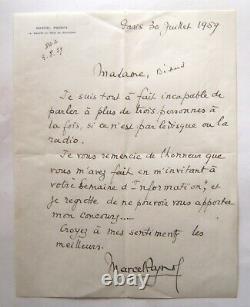 MARCEL PAGNOL
Paris 30 Juillet 1959
Madame,
Je suis tout à fait incapable de
parler à plus de trois personnes à
la fois, si ce n'est par le disque ou la
radio.
Je vous remercie de l'honneur que
vous m'avez fait en m'invitant à
votre Semaine d'Information, et
je regrette de ne pouvoir vous apporter
mon concours....
Croyez à mes sentiments les
meilleurs.
Marcel Pagnol